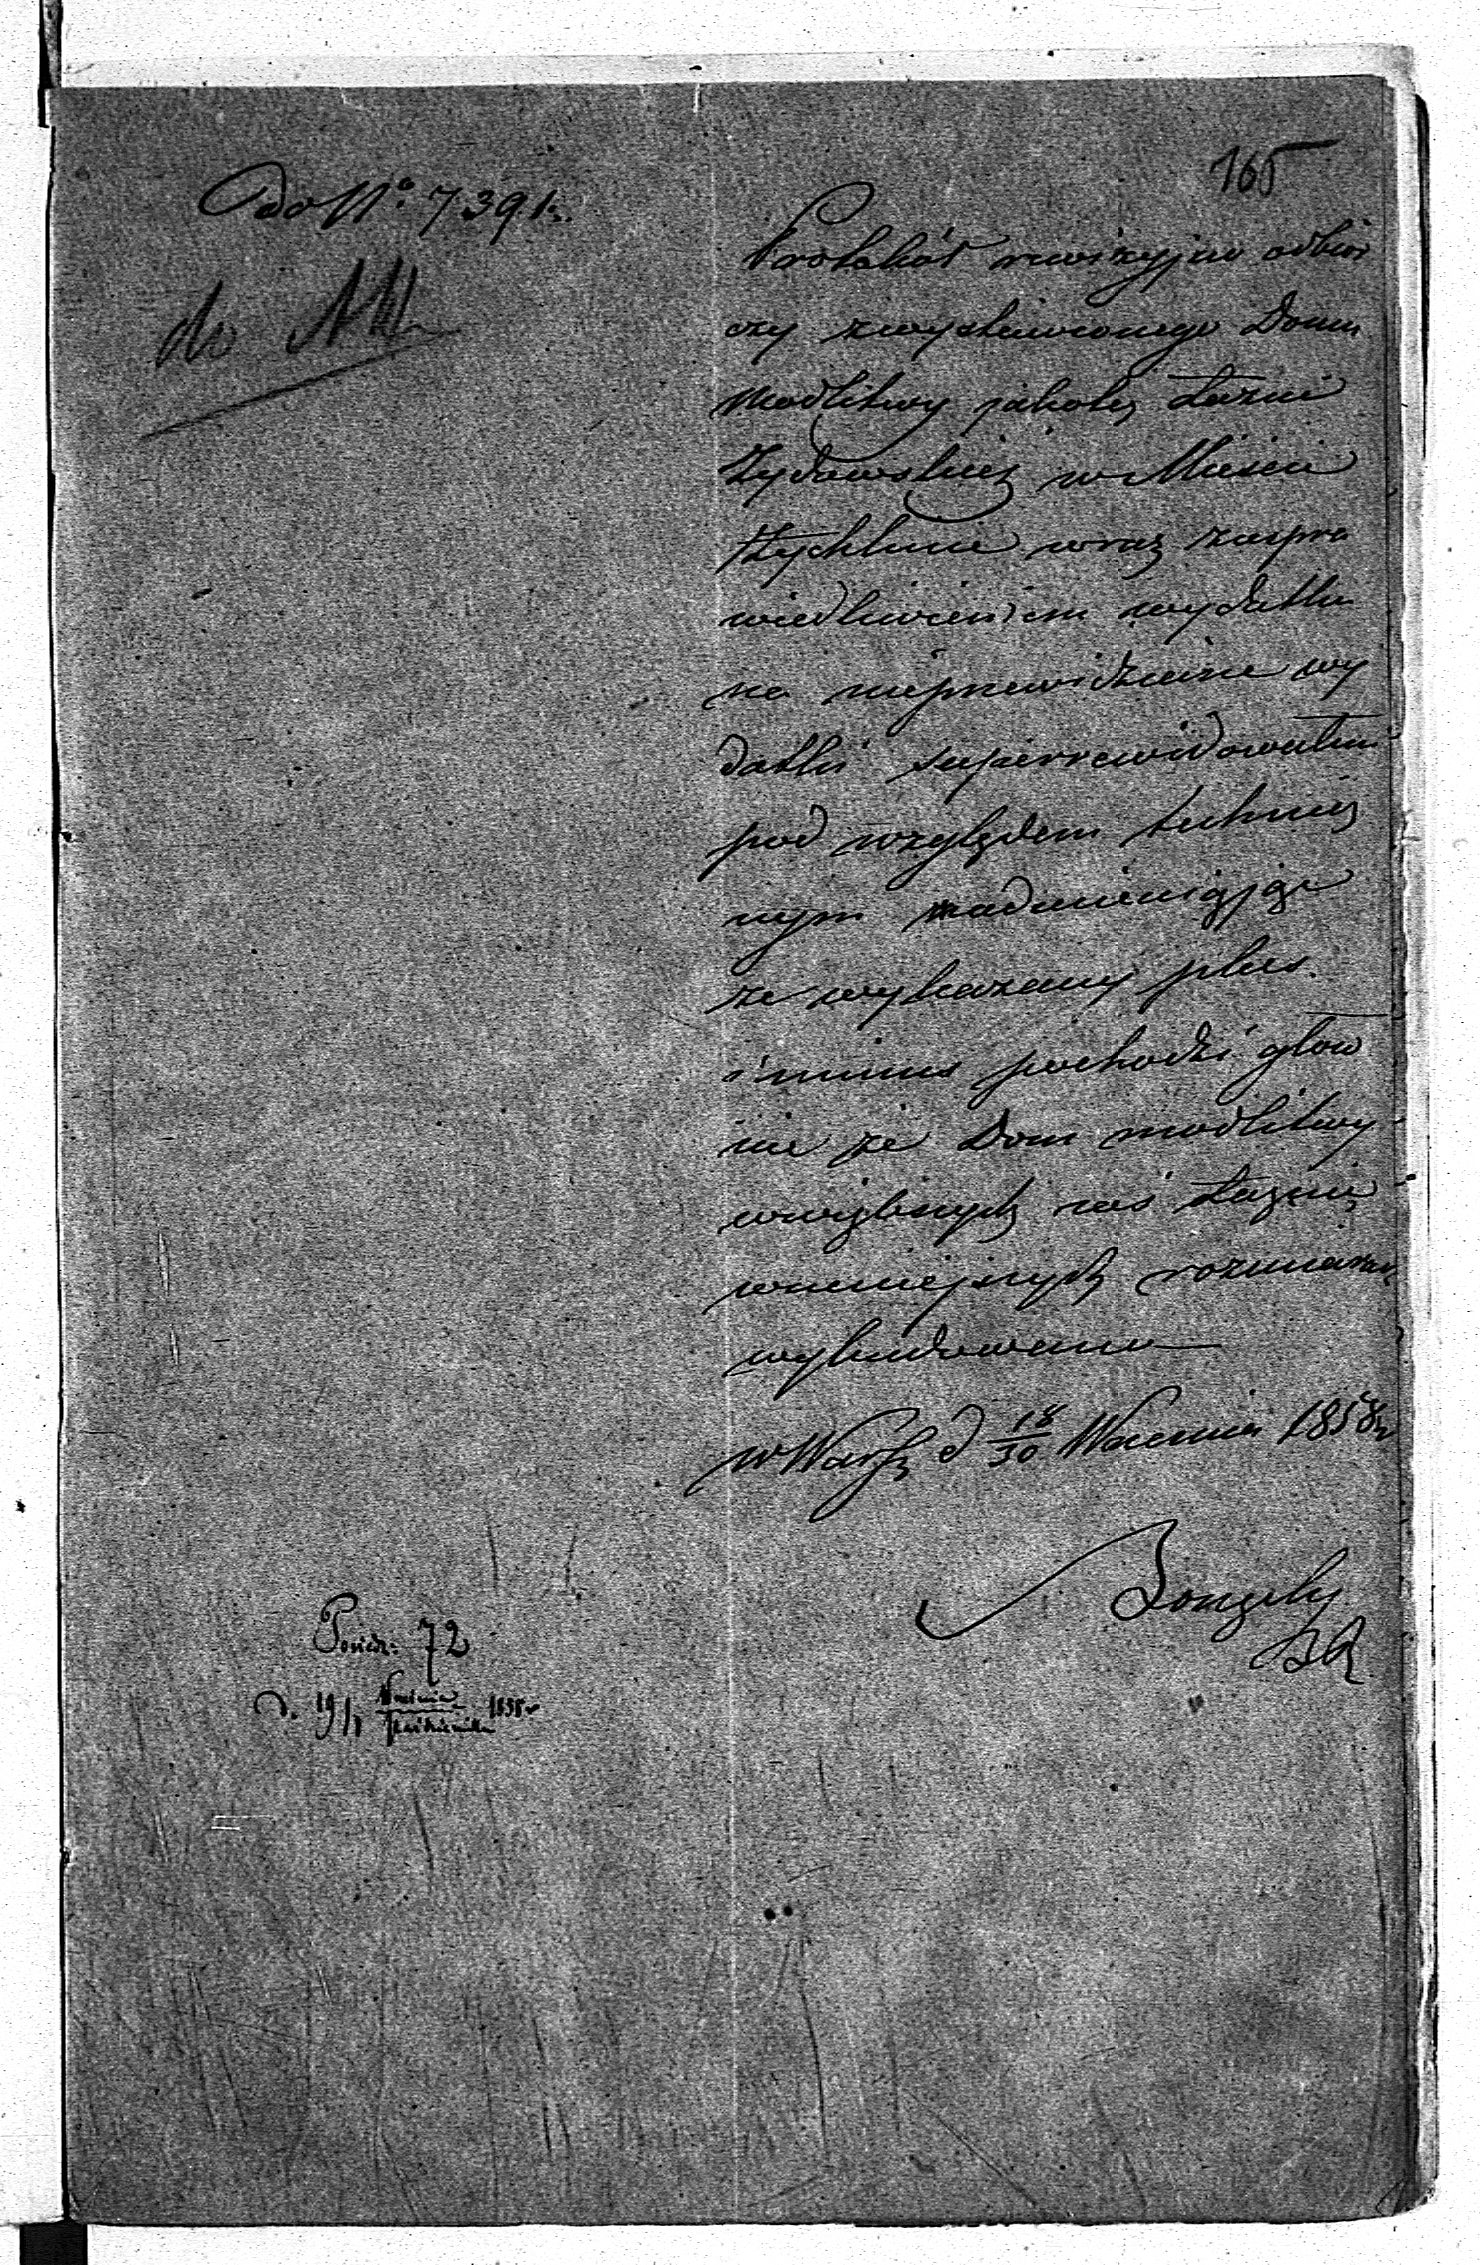 165
do No 7391.
do
Protokół rewizyjno odbior
czy z wystawionego Domu
Modlitwy jakoteż Łazni
Żydowskiej w Mieście
Żychlinie wraz z uspra
wiedliwieniem wydatku
na nieprzewidziane wy
datki superrewidowałem
pod względem technicz
nym nadmieniając
że wykazany plus
i minus pochodzi głow
nie że Dom modlitwy
w większych zaś Łaźnię
w mniejszych rozmiarach
wybudowano
w Warsz d 18/30 Września 1858 r
Posiedz: 72
d. 19/1 Września/Października 1858 r